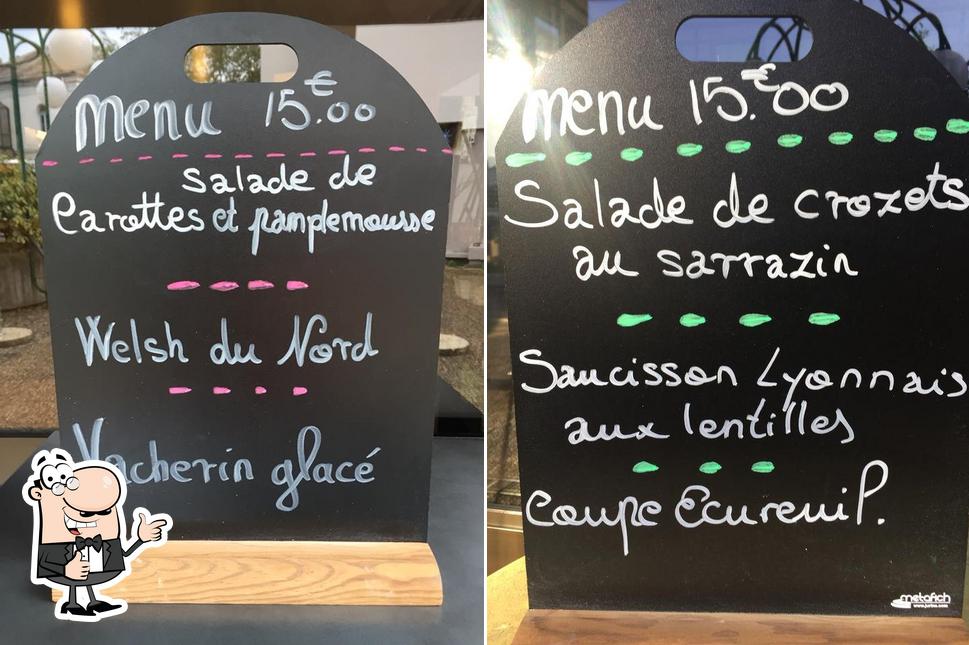 Menu 15.€00
Salade de
Carottes et pamplemousse
Welsh du Nord
Vacherin glacé
Menu 15.€00
Salade de crozets
au sarrazin
Saucisson Lyonnais
aux lentilles
Coupe Ecureuil.
metafich